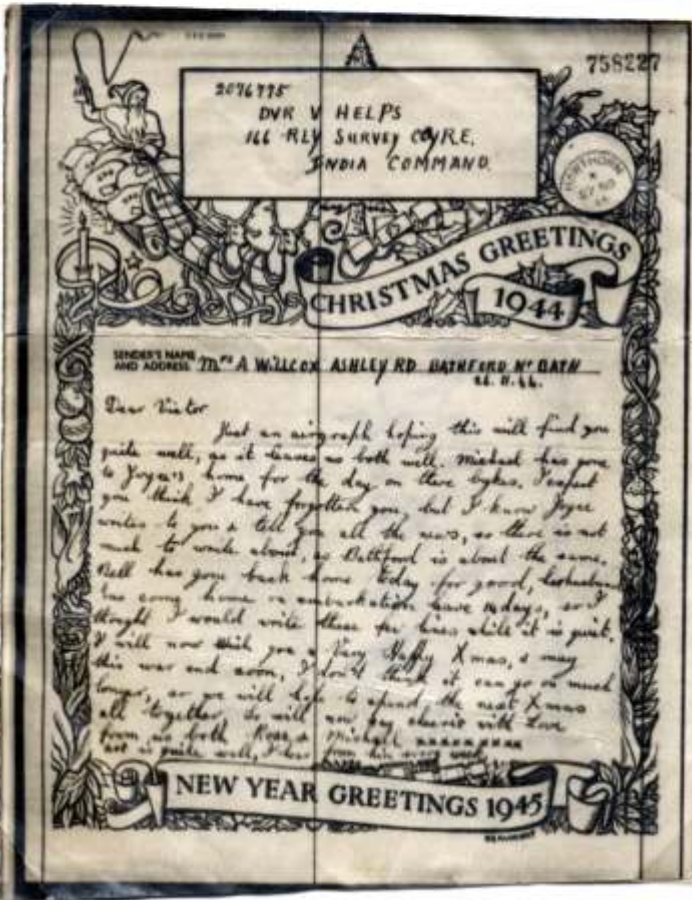 758227
2076775
DVR V HELPS
166 RLY SURVEY COY. R.E.
INDIA COMMAND.
CHRISTMAS GREETINGS
1944
SENDER'S NAME
AND ADDRESS Mrs A WILLCOX ASHLEY RD BATHFORD Nr BATH
26.11.44.
Dear Victor
Just an airgraph hoping this will find you
quite well, as it leaves us both well. Michael has gone
to Joyce's home for the day on there bykes. I expect
you think I have forgotten you, but I know Joyce
writes to you & tell you all the news, so there is not
much to write about, as Bathford is about the same.
Bell has gone back home today for good, her husband
has come home on embarkation leave 14 days, so I
thought I would write these few lines while it is quiet.
I will now wish you a Very Happy Xmas, & may
this war end soon, I don't think it can go on much
longer, so we will hope to spend the next Xmas
all together. So will now say cheerio with Love
from us both Rose & Michael xxxxxxxxx
is quite well, I hear from him every week
NEW YEAR GREETINGS 1945